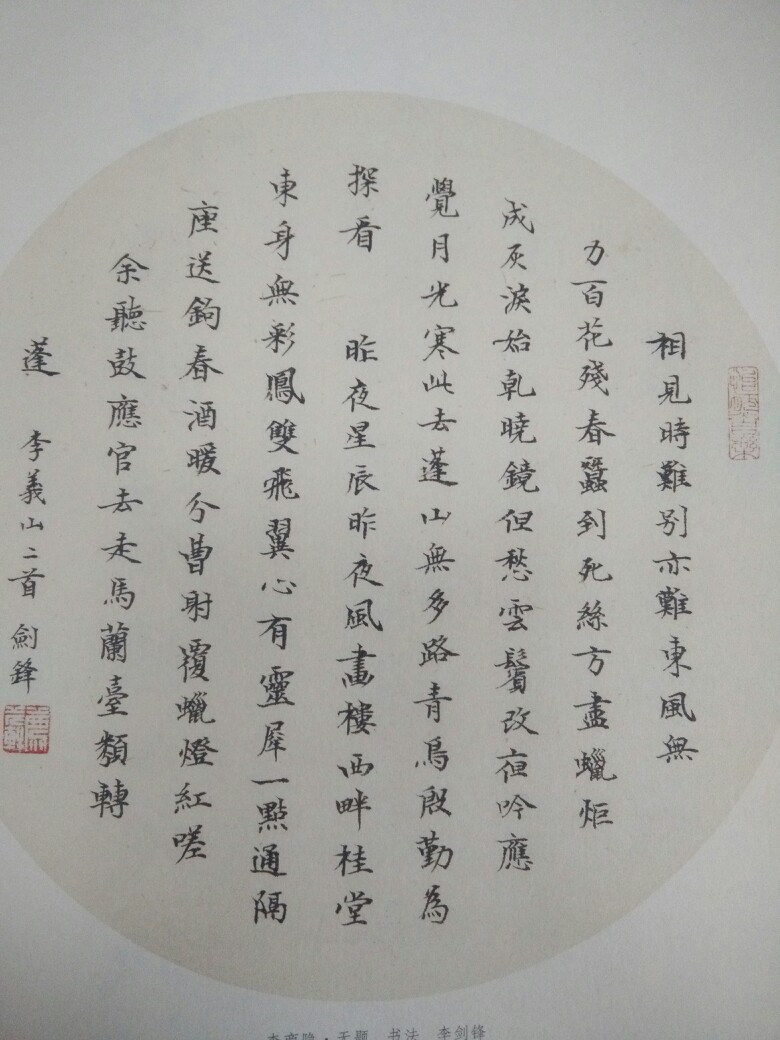 相見時難别亦難東風無
力百花殘春蠶到死絲方盡蠟炬
成灰淚始乾曉鏡但愁雲鬢改夜吟應
覺月光寒此去蓬山無多路青鳥殷勤為
探看 昨夜星辰昨夜風畫樓西畔桂堂
東身無彩鳳雙飛翼心有靈犀一點通隔
座送鉤春酒暖分曹射覆蠟燈紅嗟
余聽鼓應官去走馬蘭臺類轉
蓬 李義山二首 劍鋒
李商隐·无题 书法 李剑锋